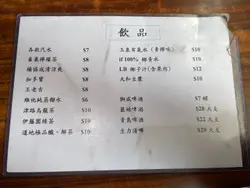 飲品
各款汽水 $7
番氣檸檬茶 $8
楊協成清涼爽 $8
加多寶 $8
王老吉 $8
維他純蒸餾水 $6
津路烏龍茶 $10
伊藤園綠茶 $10
道地極品玄米、解茶 $10
玉泉有氣水(青檸味) $10
if 100% 椰青水 $10
LB 椰子汁(含果肉) $12
大和豆漿 $10
獅威啤酒 $7 罐
藍妹啤酒 $28 大支
青島啤酒 $22 大支
生力清啤 $20 大支